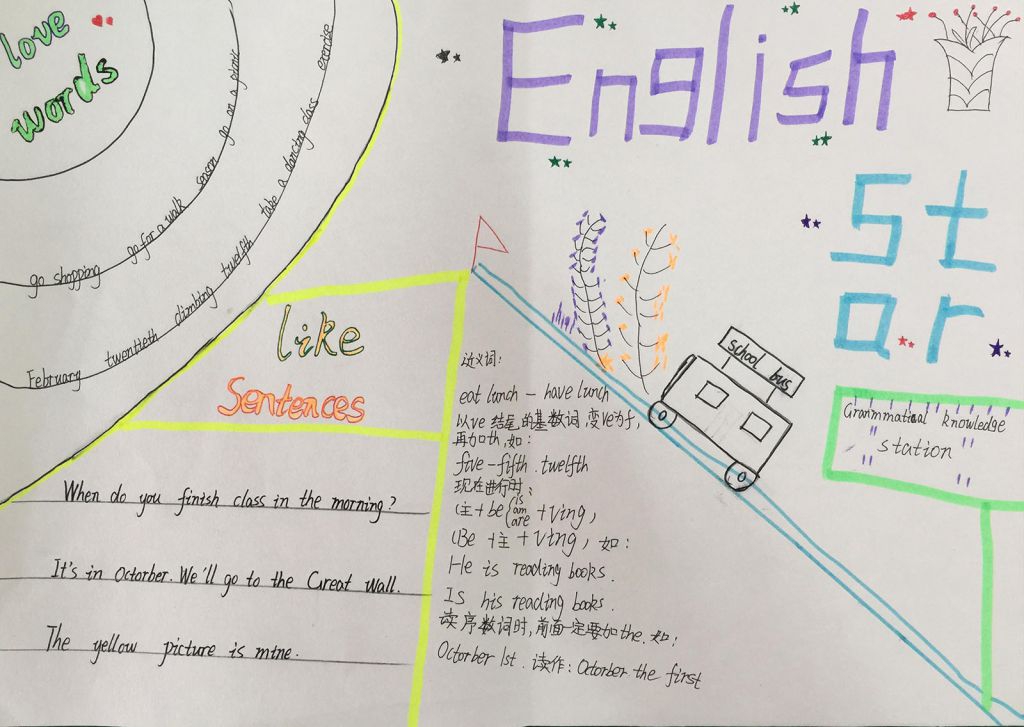 love
words
go shopping go for a walk season go on a picnic
February twentieth climbing twelfth take a dancing class exercise
English
St
ar
like
Sentences
When do you finish class in the morning?
It's in Octorber. We'll go to the Great Wall.
The yellow picture is mine.
近义词:
eat lunch — have lunch
以ve结尾的基数词,变ve为f,
再加th,如:
five-fifth.twelfth
现在进行时:
(主+be{is am are +ving,
(Be +主+ving,如:
He is reading books.
Is his reading books.
读序数词时,前面一定要加the.如:
Octorber 1st.读作:Octorber the first
school bus
Grammatical knowledge
station